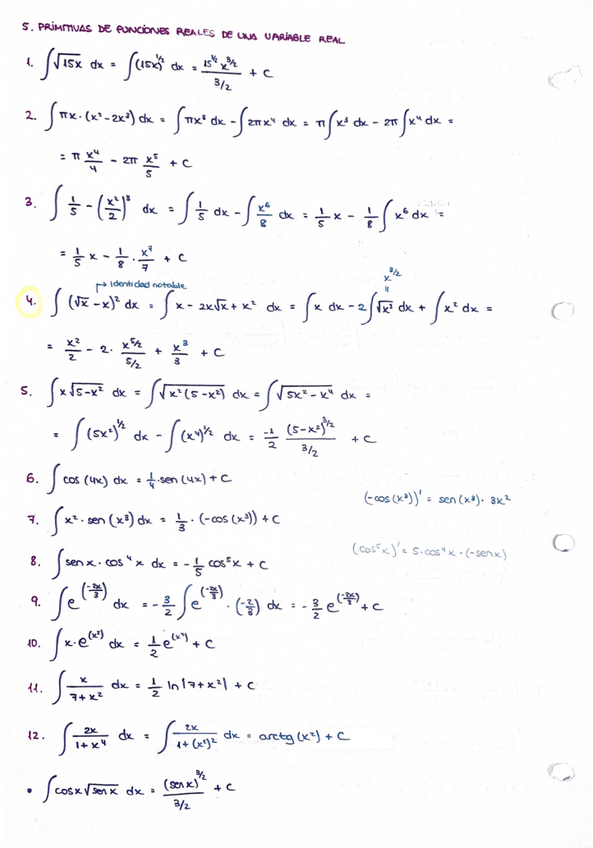 5. PRIMITIVAS DE FUNCIONES REALES DE UNA VARIABLE REAL
1. ∫√15x dx = ∫(15x)^1/2 dx = 15^1/2 x^3/2 / 3/2 + C
2. ∫πx·(x²-2x³) dx = ∫πx³ dx - ∫2πx⁴ dx = π∫x³ dx - 2π∫x⁴ dx =
= π x⁴/4 - 2π x⁵/5 + C
3. ∫ 1/5 - (x²/2)³ dx = ∫ 1/5 dx - ∫ x⁶/8 dx = 1/5 x - 1/8 ∫x⁶ dx =
= 1/5 x - 1/8 · x⁷/7 + C
Identidad notable
x^3/2
4. ∫(√x - x)² dx = ∫x - 2x√x + x² dx = ∫x dx - 2∫√x³ dx + ∫x² dx =
= x²/2 - 2· x^5/2 / 5/2 + x³/3 + C
5. ∫x√5-x² dx = ∫√x²(5-x²) dx = ∫√5x²-x⁴ dx =
= ∫(5x²)^1/2 dx - ∫(x⁴)^1/2 dx = -1/2 (5-x²)^3/2 / 3/2 + C
6. ∫cos(4x) dx = 1/4·sen(4x) + C
(-cos(x³))' = sen(x³)·3x²
7. ∫x²·sen(x³) dx = 1/3·(-cos(x³)) + C
(cos⁵x)' = 5·cos⁴x·(-senx)
8. ∫senx·cos⁴x dx = -1/5 cos⁵x + C
9. ∫e^(-2x/3) dx = -3/2 ∫e^(-2x/3)·(-2/3) dx = -3/2 e^(-2x/3) + C
10. ∫x·e^(x²) dx = 1/2 e^(x²) + C
11. ∫ x/7+x² dx = 1/2 ln|7+x²| + C
12. ∫ 2x/1+x⁴ dx = ∫ 2x/1+(x²)² dx = arctg(x²) + C
• ∫cosx√senx dx = (senx)^3/2 / 3/2 + C